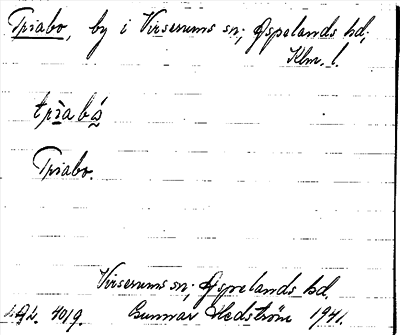 Triabo, by i Virserums sn; Aspelands hd;
Klm. l.
trìabó̱
Triabo.
Virserums sn; Aspelands hd.
Gunnar Hedström 1941.